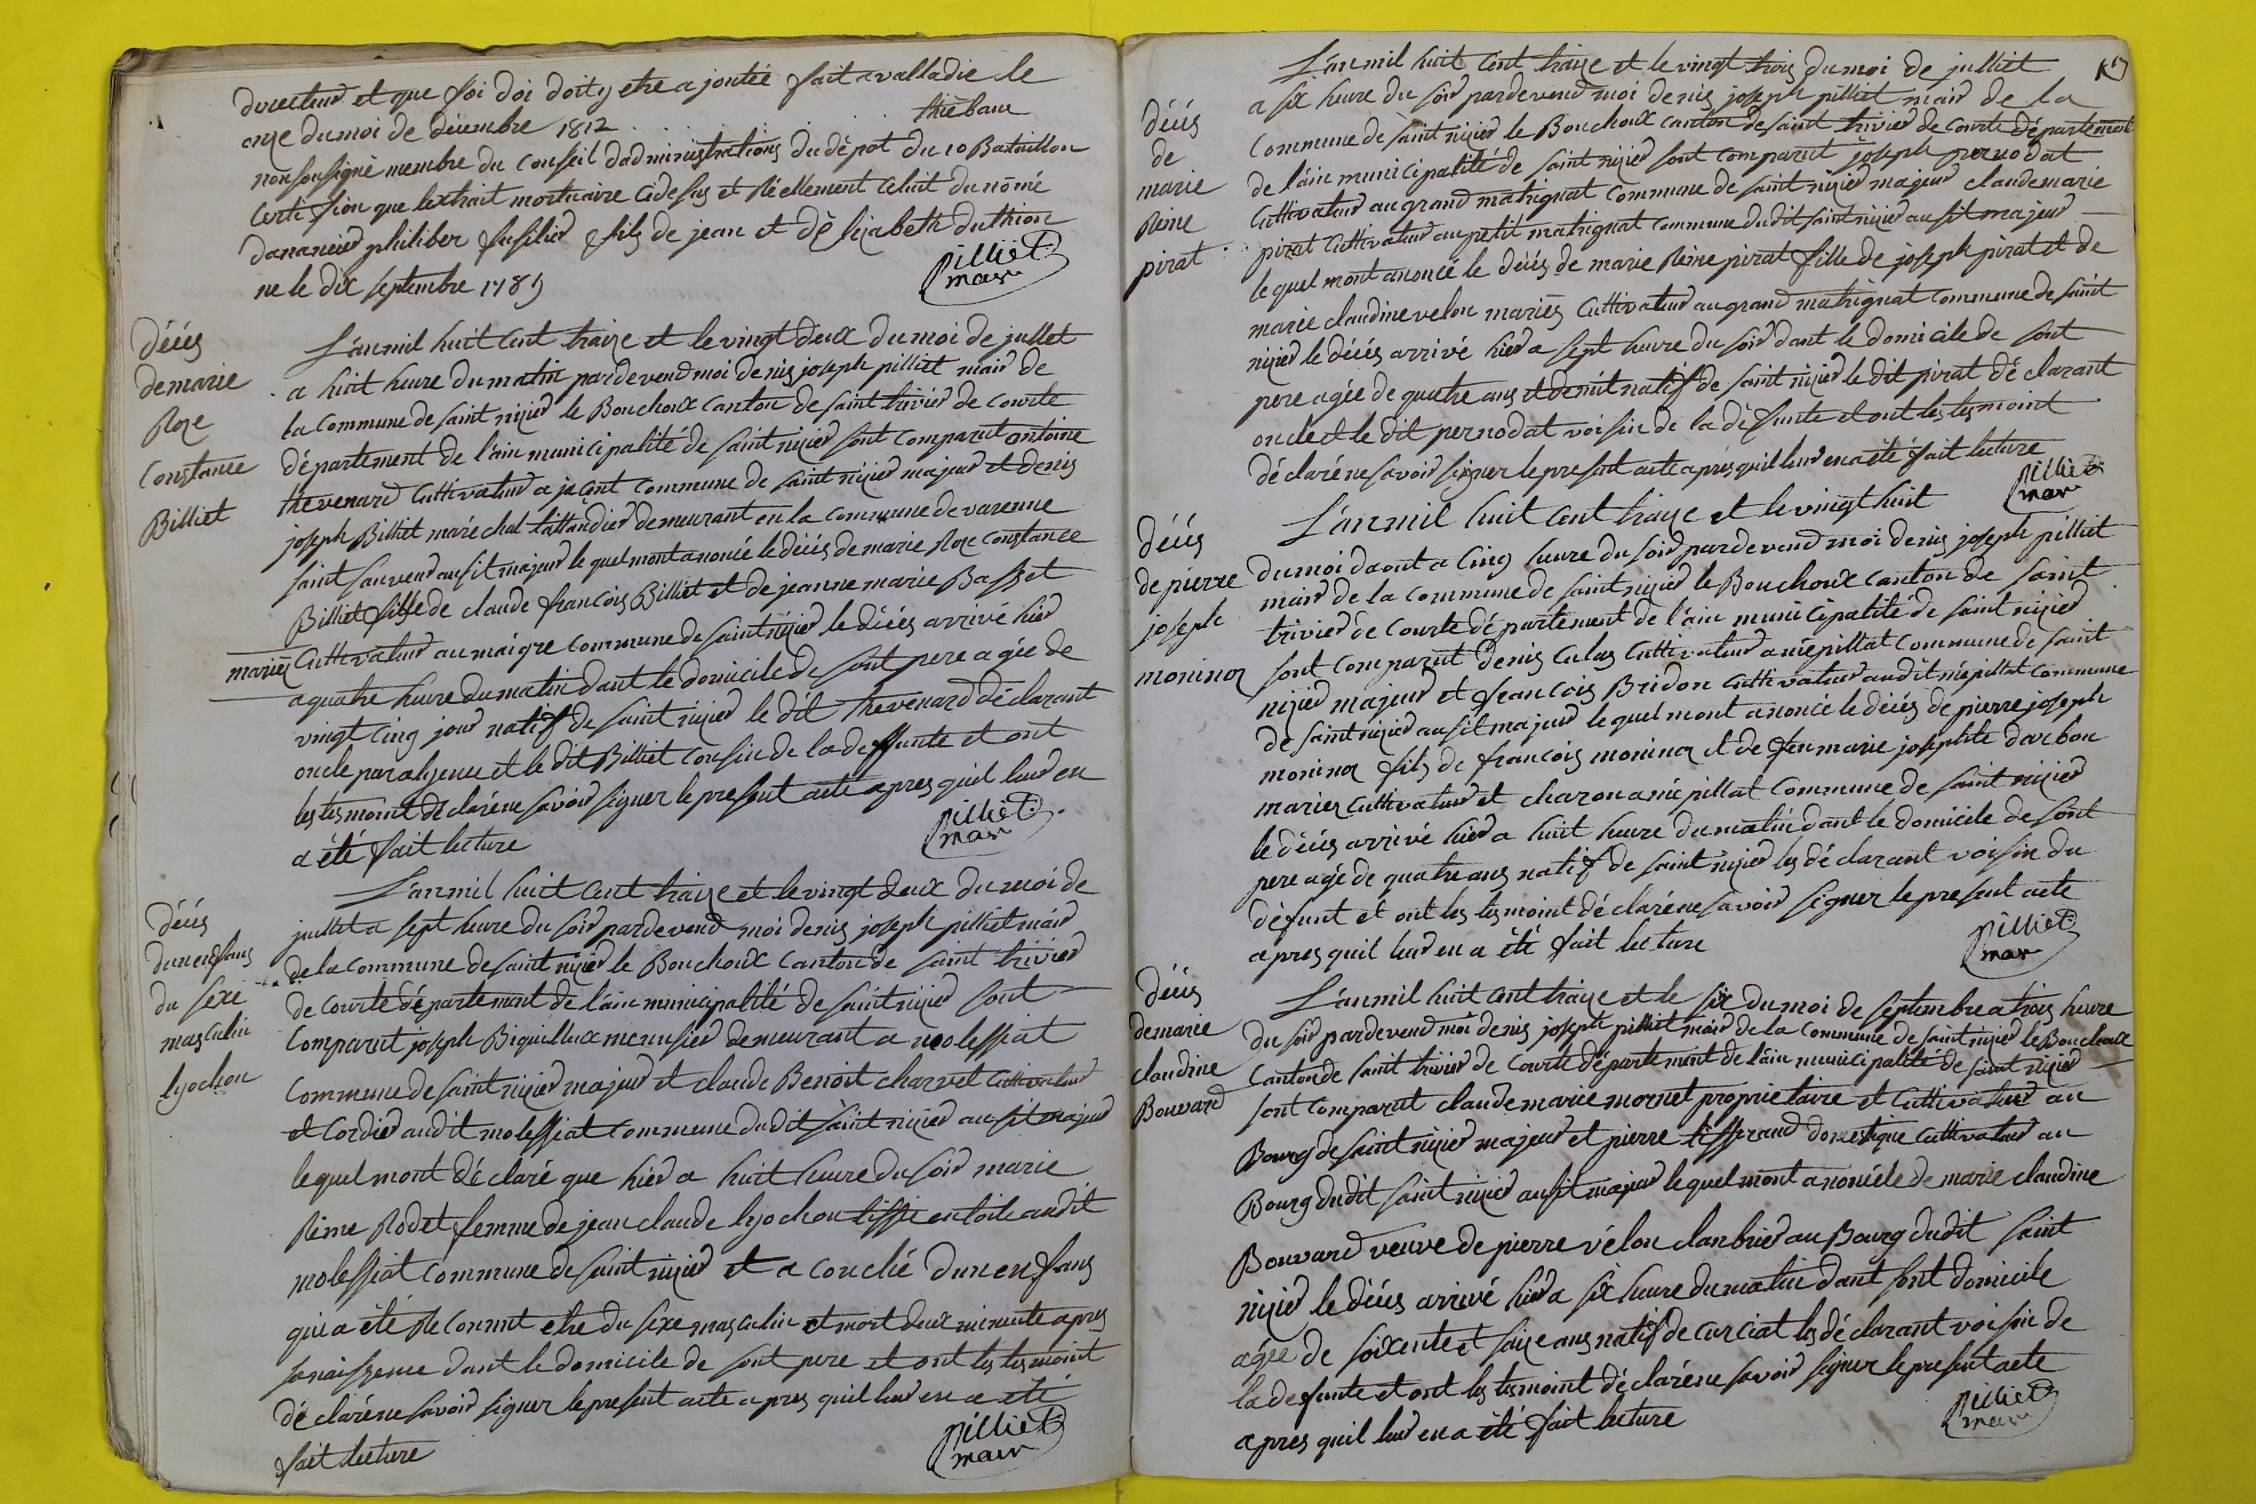 directeur et que foi doi doit y etre ajoutée fait a valladie le
onze du moi de décembre 1812 thiebaux
non sousigné membre du conseil dadministrations du dépot du 10 Bataillon
certifion que lextrait mortuaire cidesus et réellement celuit du nomé
danancier philiber fusilier fils de jean et délizabeth duthion
ne le dix septembre 1789
pilliet
mair
décés
de marie
Roze
constance
Billiet
L'an mil huit cent traize et le vingt deux du moi de jullet
a huit heure du matin pardevend moi denis joseph pilliet mair de
la commune de saint nizier le Bouchoux canton de saint trivier de courte
département de l'ain municipalité de saint nizier sont comparut antoine
thevenard cultivateur a jacont commune de saint nizier majeur et denis
joseph Billiet maréchal taillandier demeurant en la commune de varenne
saint sauveur ausit majeur lequel mont anoncé le décés de marie Roze constance
Billiet fille de claude françois Billiet et de jeanne marie Basset
mariés cultivateur au maigre commune de saint nizier le décés arrivé hier
a quatre heure du matin dant le domicile de sont pere agée de
vingt cinq jour natif de saint nizier le dit thevenard déclarant
oncle par alyence et le dit Billiet consin de la deffunte et ont
les tesmoint déclaréne savoir signer le present acte apres quil leur en
a été fait lecture
pilliet
mair
décés
dun enfans
du sexe
masculin
lyochon
L'an mil huit cent traize et le vingt deux du moi de
juillet a sept heure du soir pardevend moi denis joseph pilliet mair
de la commune de saint nizier le Bouchoux canton de saint trivier
de courte département de l'ain municipalité de saint nizier sont
comparut joseph Biguilleux menusier demeurant a molessiat
commune de saint nizier majeur et claude Benoit charvet cultivateur
et cordier audit molessiat commune du dit saint nizier ausit majeur
lequel mont déclaré que hier a huit heure du soir marie
Réine Rodet femme de jean claude lyochon tissié en toile audit
molessiat commune de saint nizier et a couché dun enfans
qui a été Reconnut etre du sexe masculin et mort deux minutte apres
sanaissence dant le domicile de sont pere et ont les tesmoint
déclaréne savoir signer le present acte apres quil leur en a été
fait lecture
pilliet
mair
décés
de
marie
Réine
pirat
L'an mil huit cent traize et le vingt trois du moi de julliet
a six heure du soir pardevend moi denis joseph pilliet mair de la
commune de saint nizier le Bouchoux canton de saint trivier de courte département
de l'ain municipalité de saint nizier sont comparut joseph pernodat
cultivateur au grand matrignat commune de saint nizier majeur claude marie
pirat cultivateur au petit matrignat commune du dit saint nizier ausit majeur
lequel mont anoncé le décés de marie Réine pirat fille de joseph pirat et de
marie claudine velon mariés cultivateur au grand matrignat commune de saint
nizier le décés arrivé hier a sept heure du soir dant le domicile de sont
pere agée de quatre ans et demit natif de saint nizier le dit pirat déclarant
oncle et le dit pernodat voisin de la défunte et ont les tesmoint
déclaréne savoir signer le present acte apres quil leur en a été fait lecture
pilliet
mair
décés
de pierre
joseph
moninoz
L'an mil huit cent traize et le vingt huit
du moi daout a cinq heure du soir pardevend moi denis joseph pilliet
mair de la commune de saint nizier le Bouchoux canton de saint
trivier de courte département de l'ain municipalité de saint nizier
sont comparut denis culas cultivateur a népillat commune de saint
nizier majeur et françois Bridon cultivateur audit népillat commune
de saint nizier ausit majeur lequel mont anoncé le décés de pierre joseph
moninoz fils de françois moninoz et de feu marie josephte darbon
mariez cultivateur et charon a népillat commune de saint nizier
le décés arrivé hier a huit heure du matin dant le domicile de sont
pere agé de quatre ans natif de saint nizier les déclarant voisin du
défunt et ont les tesmoint déclaréne savoir signer le present acte
apres quil leur en a été fait lecture
pilliet
mair
décés
de marie
claudine
Bouvard
L'an mil huit cent traize et le six du moi de septembre a trois heure
du soir pardevend moi denis joseph pilliet mair de la commune de saint nizier le Bouchoux
canton de saint trivier de courte département de l'ain municipalité de saint nizier
sont comparut claude marie mornet proprietaire et cultivateur au
Bourg de saint nizier majeur et pierre tisserand domestique cultivateur au
Bourg dudit saint nizier ausit majeur lequel mont anoncéle de marie claudine
Bouvard veuve de pierre vélon clanbrier au Bourg dudit saint
nizier le décés arrivé hier a six heure du matin dant sont domicile
agée de soixente et saize ans natif de curciat les déclarant voisin de
la defunte et ont les tesmoint déclaréne savoir signer le present acte
apres quil leur en a été fait lecture
pilliet
mair